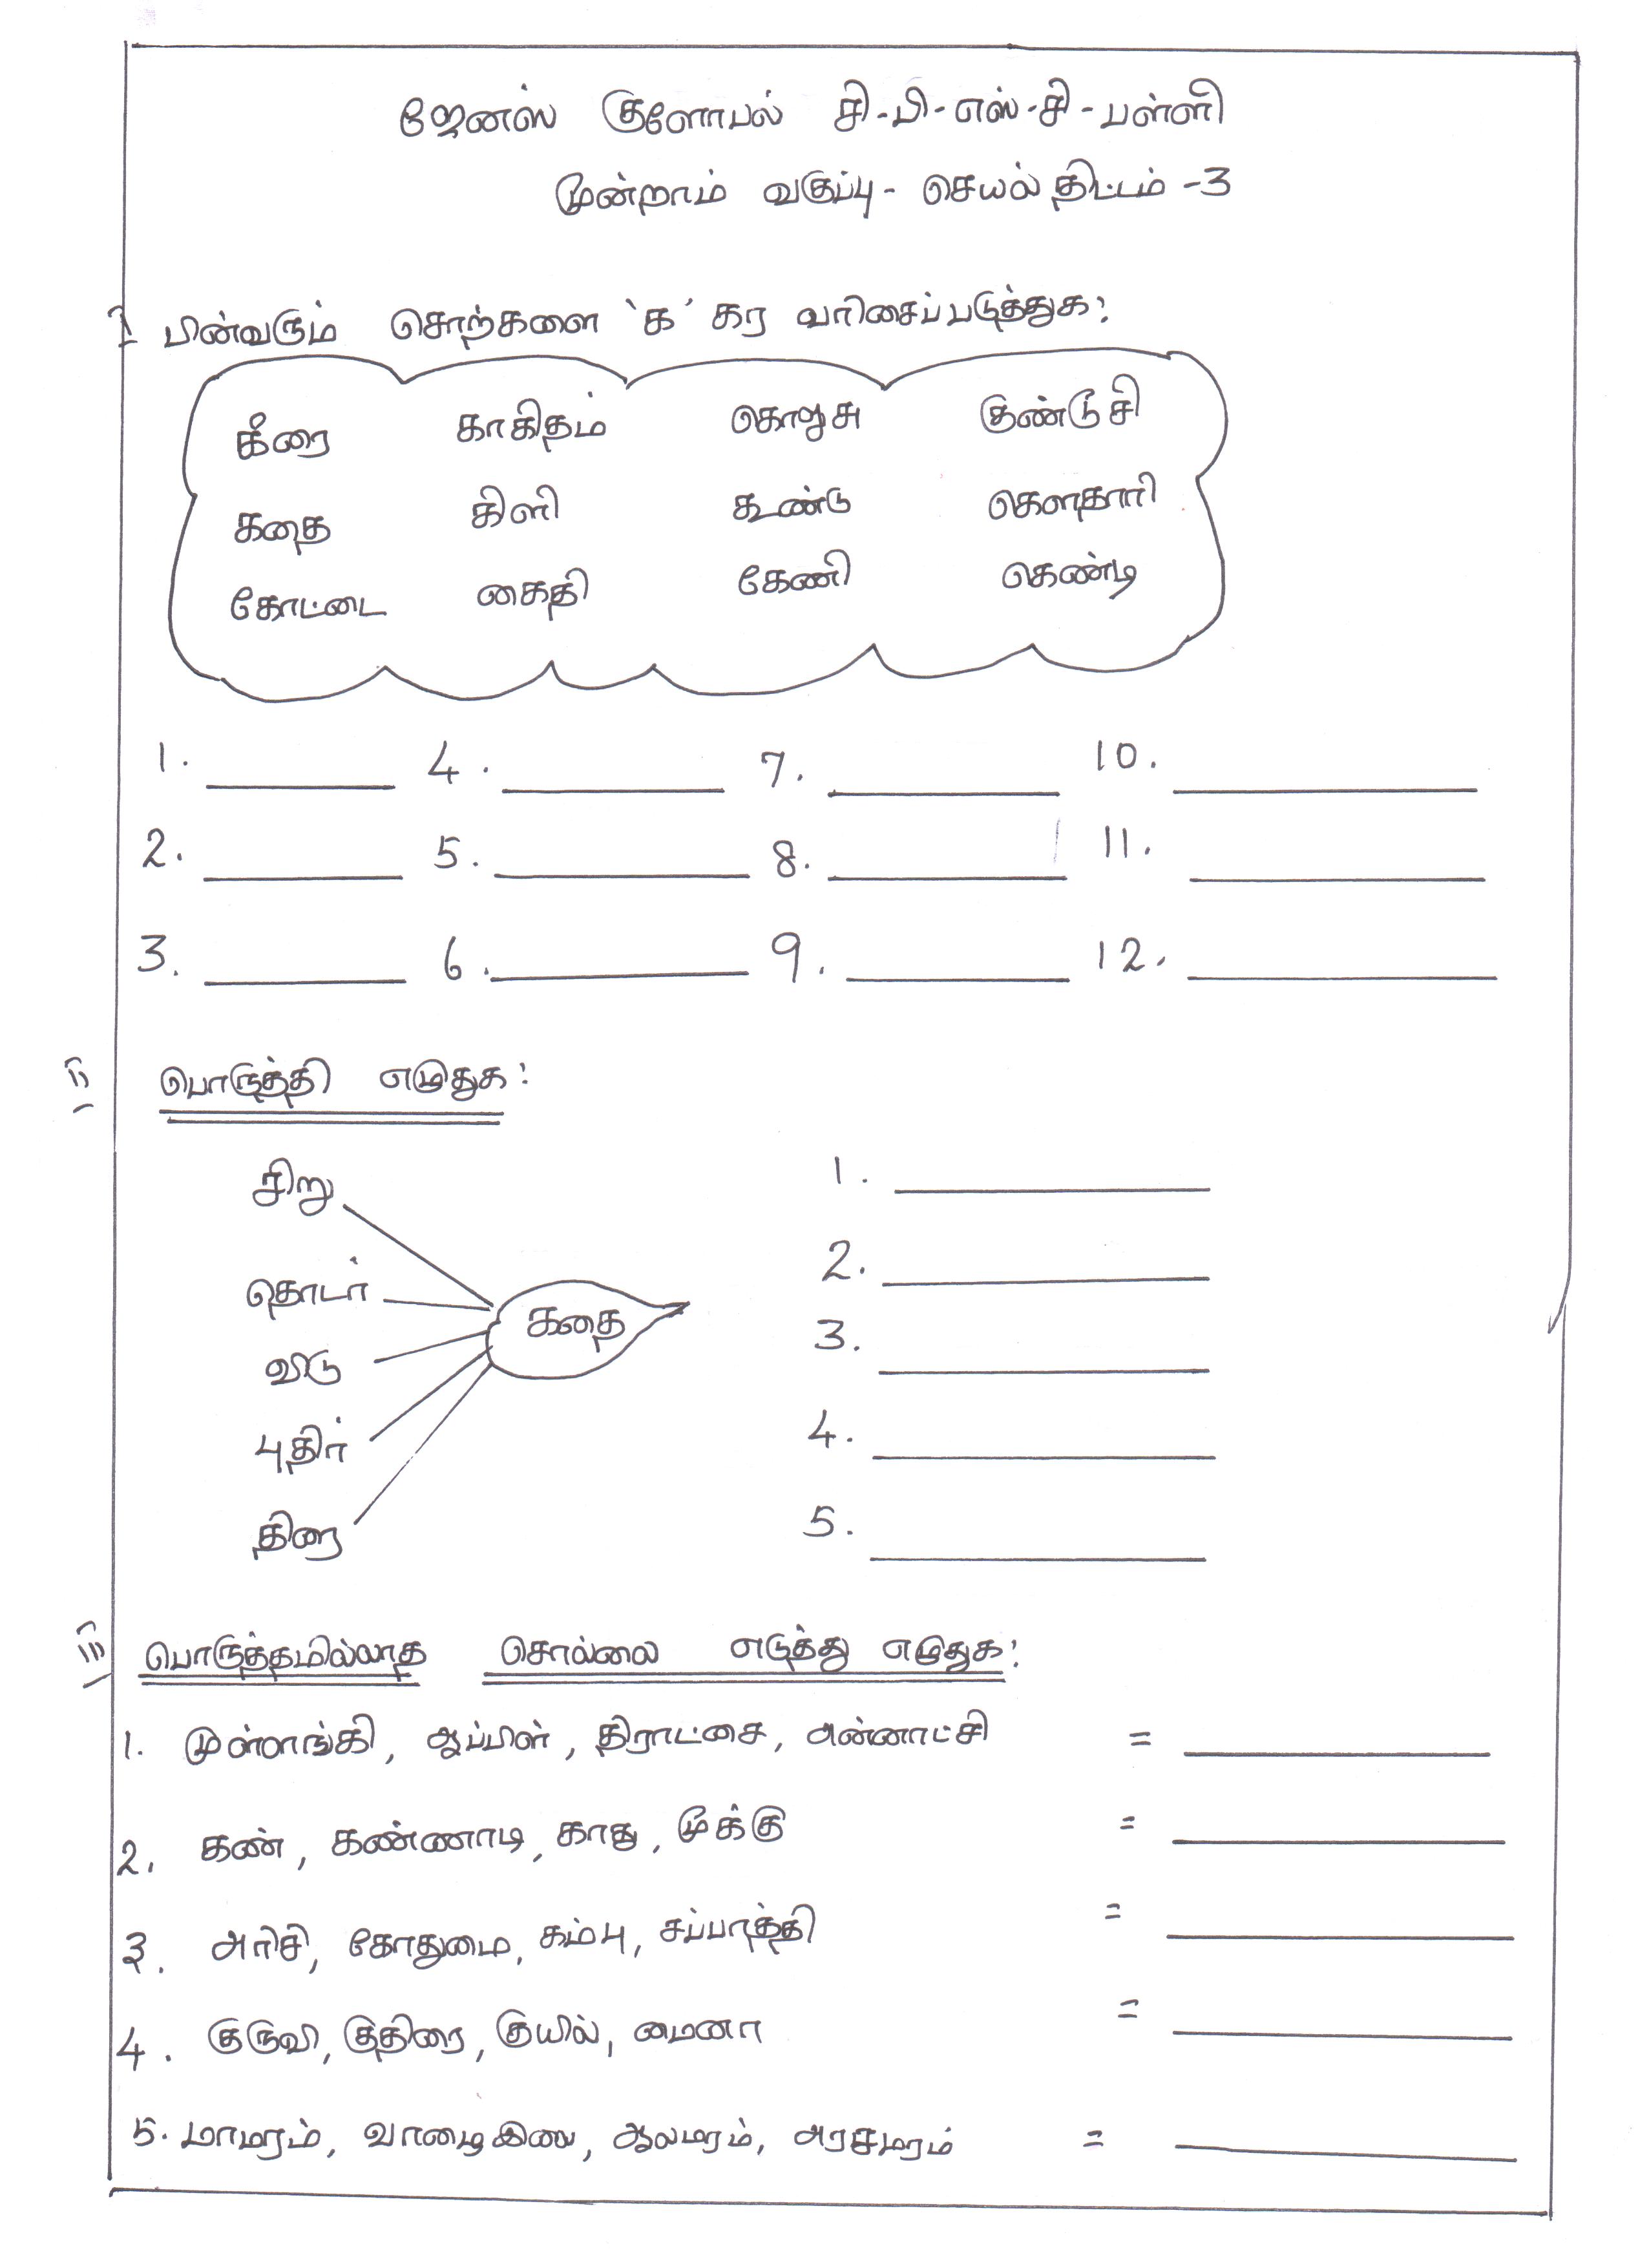 ஜேனஸ் குளோபல் சி-பி-எஸ்-சி-பள்ளி
மூன்றாம் வகுப்பு - செயல் திட்டம் -3
I பின்வரும் சொற்களை 'க' கர வரிசைப்படுத்துக:
கீரை காகிதம் கொலுசு குண்டூசி
கதை கிளி கூண்டு கௌதாரி
கோட்டை கைதி கேணி கெண்டி
1. ________ 4. ________ 7. ________ 10. ________
2. ________ 5. ________ 8. ________ 11. ________
3. ________ 6. ________ 9. ________ 12. ________
II பொருத்தி எழுதுக:
சிறு 1. ________
தொடர் 2. ________
கதை
விடு 3. ________
புதிர் 4. ________
திரை 5. ________
III பொருத்தமில்லாத சொல்லை எடுத்து எழுதுக:
1. முள்ளங்கி, ஆப்பிள், திராட்சை, அன்னாட்சி = ________
2. கண், கண்ணாடி, காது, மூக்கு = ________
3. அரிசி, கோதுமை, கம்பு, சப்பாத்தி = ________
4. குருவி, குதிரை, குயில், மைனா = ________
5. மாமரம், வாழைஇலை, ஆலமரம், அரசமரம் = ________